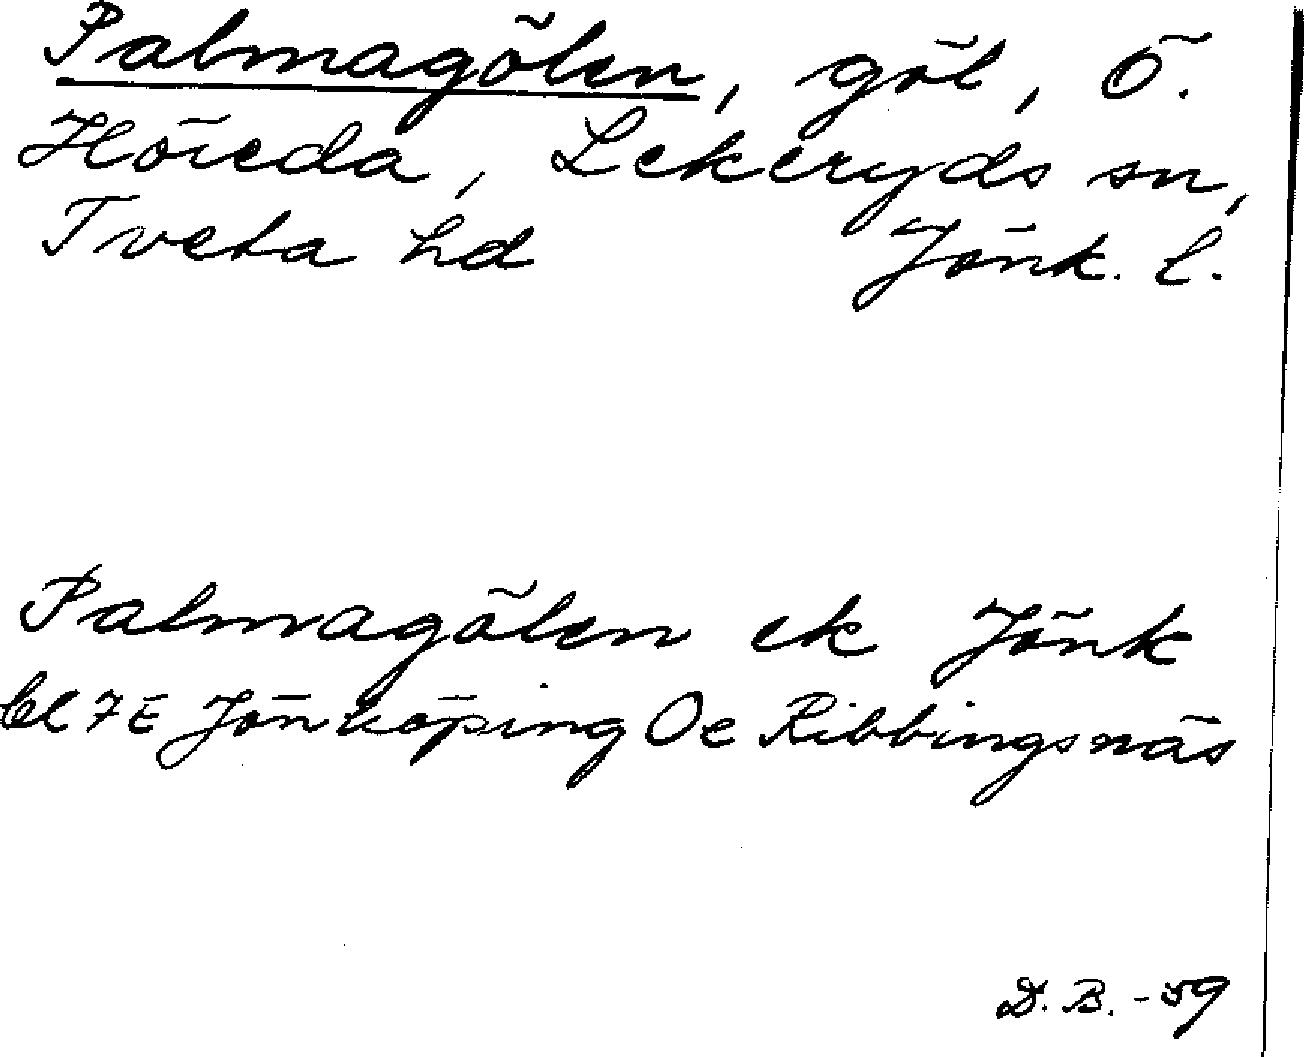 Palmagölen, göl, Ö.
Höreda, Lekeryds sn,
Tveta hd Jönk. l.
Palmagölen ek Jönk
bl 7E Jönköping Oe Ribbingsnäs
D. B. -59